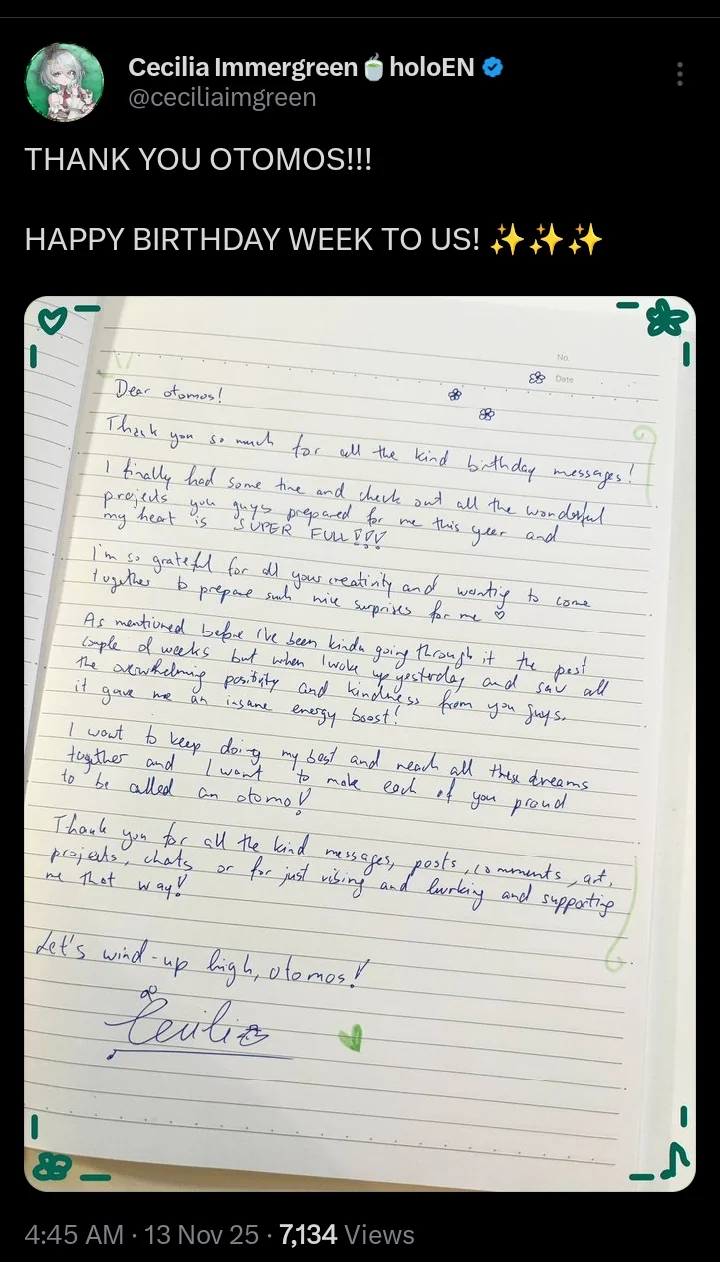 Cecilia Immergreen🍵holoEN
@ceciliaimgreen
THANK YOU OTOMOS!!!
HAPPY BIRTHDAY WEEK TO US! ✨✨✨
No.
Date
Dear otomos!
Thank you so much for all the kind birthday messages!
I finally had some time and check out all the wonderful
projects you guys prepared for me this year and
my heart is SUPER FULL!!!
I'm so grateful for all your creativity and wanting to come
together to prepare such nice surprises for me ♡
As mentioned before I've been kinda going through it the past
couple of weeks but when I woke up yesterday and saw all
the overwhelming positivity and kindness from you guys,
it gave me an insane energy boost!
I want to keep doing my best and reach all these dreams
together and I want to make each of you proud
to be called an otomo!
Thank you for all the kind messages, posts, comments, art,
projects, chats or for just vibing and lurking and supporting
me that way!
Let's wind-up high, otomos!
Cecilia
4:45 AM · 13 Nov 25 · 7,134 Views